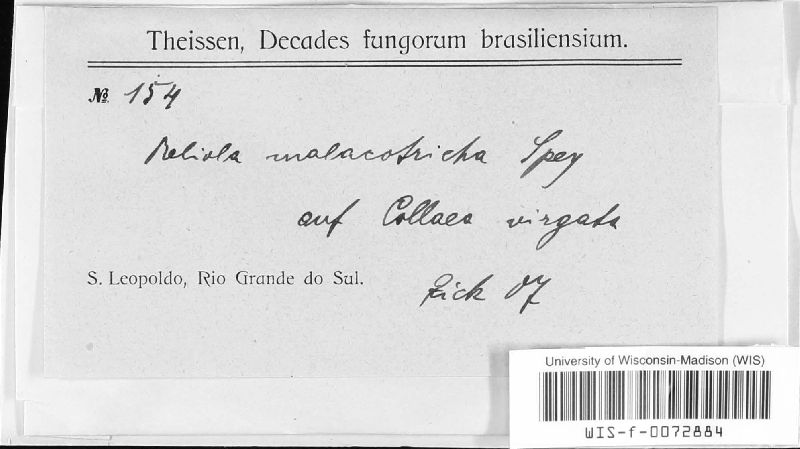 Theissen, Decades fungorum brasiliensium.
№ 154
Meliola malacotricha Speg
auf Collaea virgata
S. Leopoldo, Rio Grande do Sul.
Rick 07
University of Wisconsin-Madison (WIS)
WIS-f-0072884